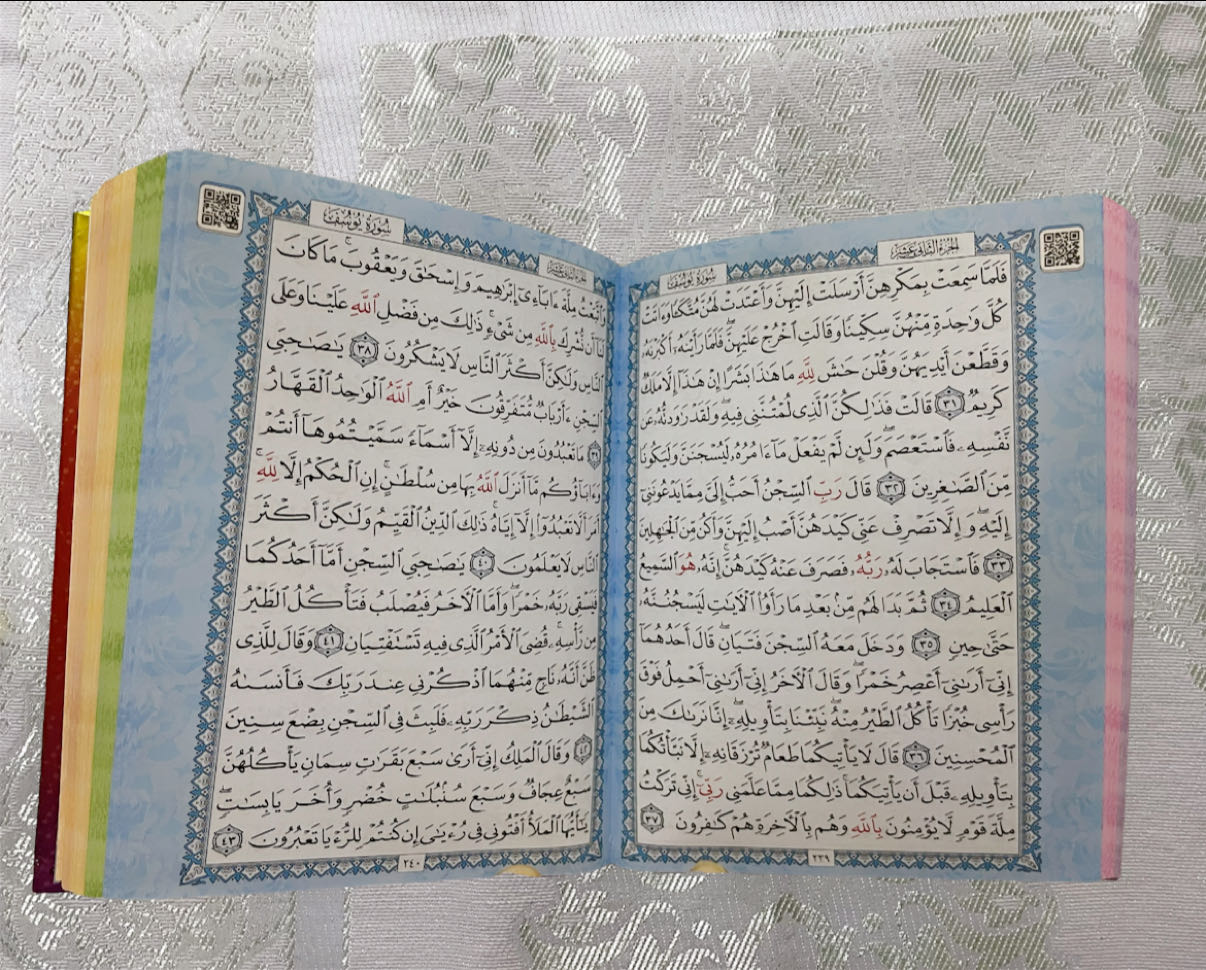 الجزء الثاني عشر
سورة يوسف
فَلَمَّا سَمِعَتْ بِمَكْرِهِنَّ أَرْسَلَتْ إِلَيْهِنَّ وَأَعْتَدَتْ لَهُنَّ مُتَّكَـًٔا وَءَاتَتْ
كُلَّ وَٰحِدَةٍ مِّنْهُنَّ سِكِّينًا وَقَالَتِ ٱخْرُجْ عَلَيْهِنَّ ۖ فَلَمَّا رَأَيْنَهُۥٓ أَكْبَرْنَهُۥ
وَقَطَّعْنَ أَيْدِيَهُنَّ وَقُلْنَ حَـٰشَ لِلَّهِ مَا هَـٰذَا بَشَرًا إِنْ هَـٰذَآ إِلَّا مَلَكٌ
كَرِيمٌ ٣١ قَالَتْ فَذَٰلِكُنَّ ٱلَّذِى لُمْتُنَّنِى فِيهِ ۖ وَلَقَدْ رَٰوَدتُّهُۥ عَن
نَّفْسِهِۦ فَٱسْتَعْصَمَ ۖ وَلَئِن لَّمْ يَفْعَلْ مَآ ءَامُرُهُۥ لَيُسْجَنَنَّ وَلَيَكُونًا
مِّنَ ٱلصَّـٰغِرِينَ ٣٢ قَالَ رَبِّ ٱلسِّجْنُ أَحَبُّ إِلَىَّ مِمَّا يَدْعُونَنِىٓ
إِلَيْهِ ۖ وَإِلَّا تَصْرِفْ عَنِّى كَيْدَهُنَّ أَصْبُ إِلَيْهِنَّ وَأَكُن مِّنَ ٱلْجَـٰهِلِينَ
٣٣ فَٱسْتَجَابَ لَهُۥ رَبُّهُۥ فَصَرَفَ عَنْهُ كَيْدَهُنَّ ۚ إِنَّهُۥ هُوَ ٱلسَّمِيعُ
ٱلْعَلِيمُ ٣٤ ثُمَّ بَدَا لَهُم مِّنۢ بَعْدِ مَا رَأَوُا۟ ٱلْـَٔايَـٰتِ لَيَسْجُنُنَّهُۥ
حَتَّىٰ حِينٍ ٣٥ وَدَخَلَ مَعَهُ ٱلسِّجْنَ فَتَيَانِ ۖ قَالَ أَحَدُهُمَآ
إِنِّىٓ أَرَىٰنِىٓ أَعْصِرُ خَمْرًا ۖ وَقَالَ ٱلْـَٔاخَرُ إِنِّىٓ أَرَىٰنِىٓ أَحْمِلُ فَوْقَ
رَأْسِى خُبْزًا تَأْكُلُ ٱلطَّيْرُ مِنْهُ ۖ نَبِّئْنَا بِتَأْوِيلِهِۦٓ ۖ إِنَّا نَرَىٰكَ مِنَ
ٱلْمُحْسِنِينَ ٣٦ قَالَ لَا يَأْتِيكُمَا طَعَامٌ تُرْزَقَانِهِۦٓ إِلَّا نَبَّأْتُكُمَا
بِتَأْوِيلِهِۦ قَبْلَ أَن يَأْتِيَكُمَا ۚ ذَٰلِكُمَا مِمَّا عَلَّمَنِى رَبِّىٓ ۚ إِنِّى تَرَكْتُ
مِلَّةَ قَوْمٍ لَّا يُؤْمِنُونَ بِٱللَّهِ وَهُم بِٱلْـَٔاخِرَةِ هُمْ كَـٰفِرُونَ ٣٧
٢٣٩
الجزء الثاني عشر
سورة يوسف
وَٱتَّبَعْتُ مِلَّةَ ءَابَآءِىٓ إِبْرَٰهِيمَ وَإِسْحَـٰقَ وَيَعْقُوبَ ۚ مَا كَانَ
لَنَآ أَن نُّشْرِكَ بِٱللَّهِ مِن شَىْءٍ ۚ ذَٰلِكَ مِن فَضْلِ ٱللَّهِ عَلَيْنَا وَعَلَى
ٱلنَّاسِ وَلَـٰكِنَّ أَكْثَرَ ٱلنَّاسِ لَا يَشْكُرُونَ ٣٨ يَـٰصَـٰحِبَىِ
ٱلسِّجْنِ ءَأَرْبَابٌ مُّتَفَرِّقُونَ خَيْرٌ أَمِ ٱللَّهُ ٱلْوَٰحِدُ ٱلْقَهَّارُ
٣٩ مَا تَعْبُدُونَ مِن دُونِهِۦٓ إِلَّآ أَسْمَآءً سَمَّيْتُمُوهَآ أَنتُمْ
وَءَابَآؤُكُم مَّآ أَنزَلَ ٱللَّهُ بِهَا مِن سُلْطَـٰنٍ ۚ إِنِ ٱلْحُكْمُ إِلَّا لِلَّهِ ۚ
أَمَرَ أَلَّا تَعْبُدُوٓا۟ إِلَّآ إِيَّاهُ ۚ ذَٰلِكَ ٱلدِّينُ ٱلْقَيِّمُ وَلَـٰكِنَّ أَكْثَرَ
ٱلنَّاسِ لَا يَعْلَمُونَ ٤٠ يَـٰصَـٰحِبَىِ ٱلسِّجْنِ أَمَّآ أَحَدُكُمَا
فَيَسْقِى رَبَّهُۥ خَمْرًا ۖ وَأَمَّا ٱلْـَٔاخَرُ فَيُصْلَبُ فَتَأْكُلُ ٱلطَّيْرُ
مِن رَّأْسِهِۦ ۚ قُضِىَ ٱلْأَمْرُ ٱلَّذِى فِيهِ تَسْتَفْتِيَانِ ٤١ وَقَالَ لِلَّذِى
ظَنَّ أَنَّهُۥ نَاجٍ مِّنْهُمَا ٱذْكُرْنِى عِندَ رَبِّكَ فَأَنسَىٰهُ
ٱلشَّيْطَـٰنُ ذِكْرَ رَبِّهِۦ فَلَبِثَ فِى ٱلسِّجْنِ بِضْعَ سِنِينَ
٤٢ وَقَالَ ٱلْمَلِكُ إِنِّىٓ أَرَىٰ سَبْعَ بَقَرَٰتٍ سِمَانٍ يَأْكُلُهُنَّ
سَبْعٌ عِجَافٌ وَسَبْعَ سُنۢبُلَـٰتٍ خُضْرٍ وَأُخَرَ يَابِسَـٰتٍ ۖ
يَـٰٓأَيُّهَا ٱلْمَلَأُ أَفْتُونِى فِى رُءْيَـٰىَ إِن كُنتُمْ لِلرُّءْيَا تَعْبُرُونَ ٤٣
٢٤٠